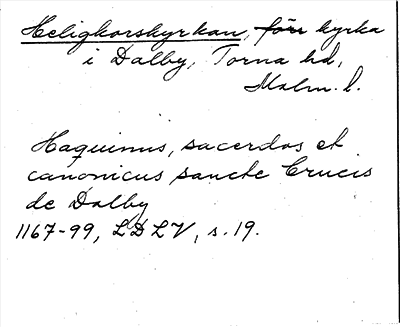 Heligkorskyrkan, förr kyrka
i Dalby, Torna hd,
Malm. l.
Haquinus, sacerdos et
canonicus sancte Crucis
de Dalby
1167-99, LDLV, s. 19.